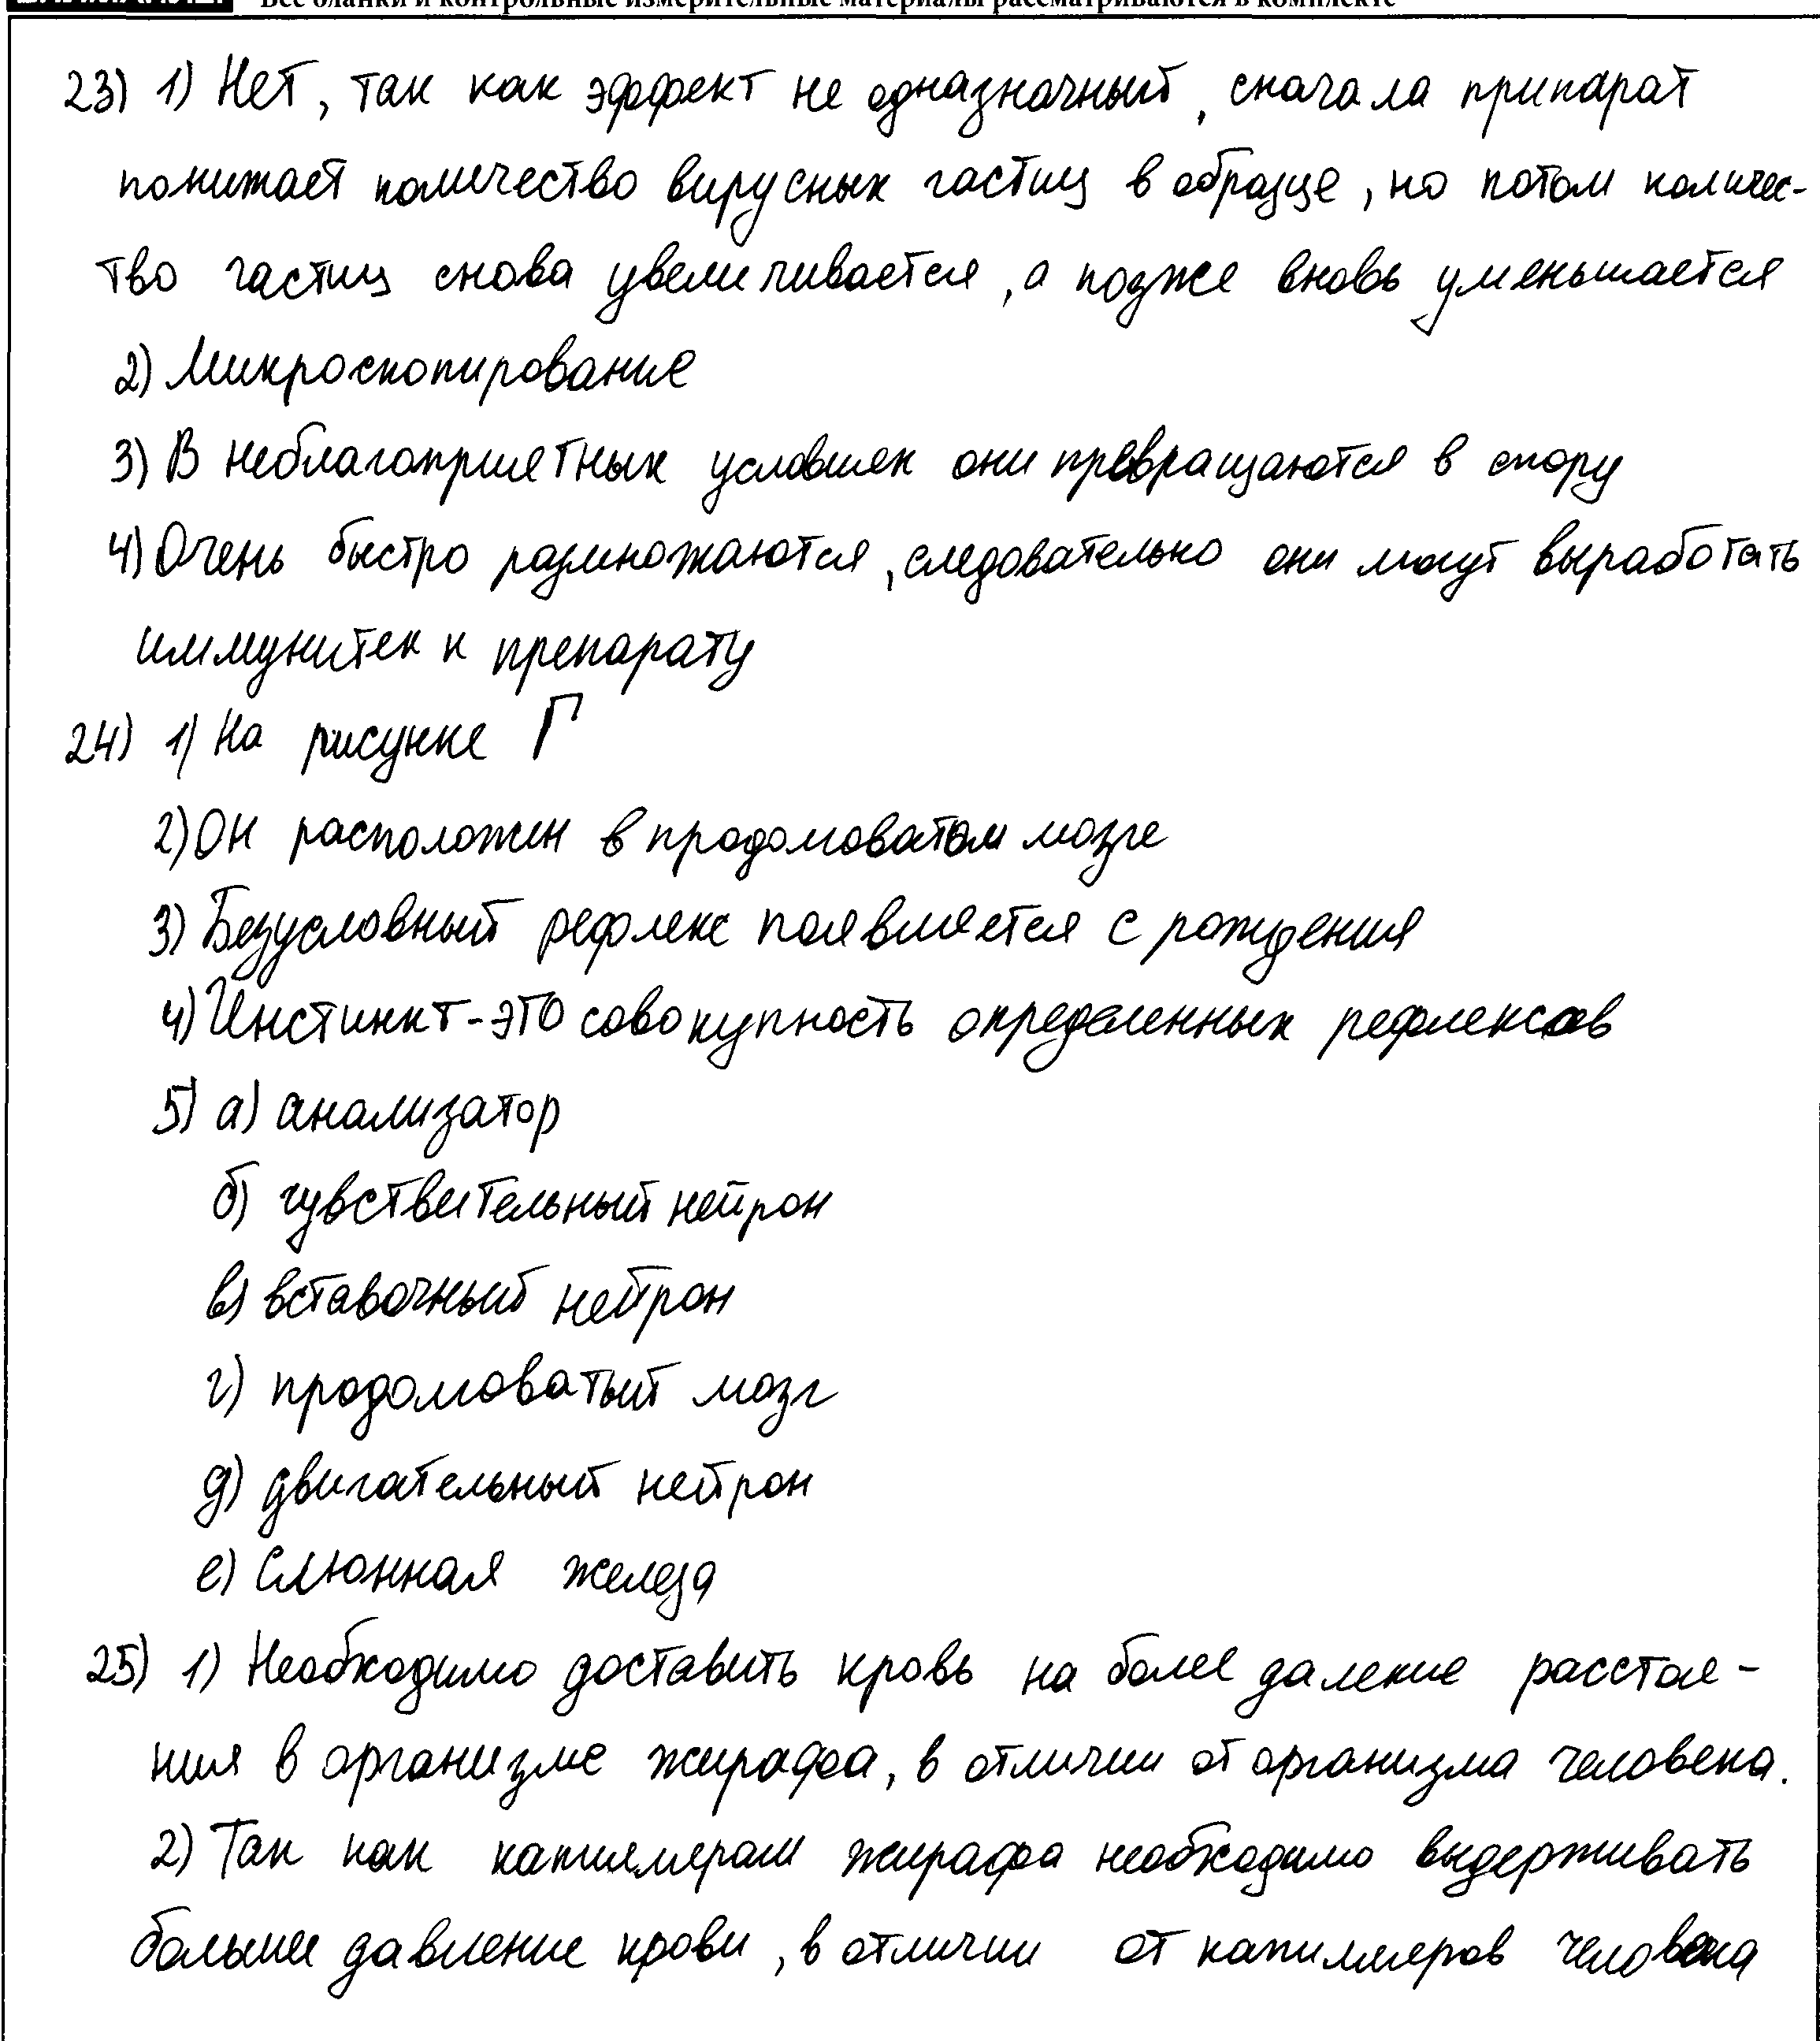 Все бланки и контрольные измерительные материалы рассматриваются в комплекте
23) 1) Нет, так как эффект не одназначный, сначала припарат
понижает количество вирусных частиц в образце, но потом количес-
тво частиц снова увеличивается, а позже вновь уменьшается
2) Микроскопирование
3) В неблагоприятных условиях они превращаются в спору
4) Очень быстро размножаются, следовательно они могут выработать
иммунитек к препарату
24) 1) На рисунке Г
2) Он расположен в продолговатом мозге
3) Безусловный рефлекс появляется с рождения
4) Инстинкт-это совокупность определенных рефлексов
5) а) анализатор
б) чувствительный нейрон
в) вставочный нейрон
г) продолговатый мозг
д) двигательный нейрон
е) Слюнная железа
25) 1) Необходимо доставить кровь на более далекие расстоя-
ния в организме жирафа, в отличии от организма человека.
2) Так как капиллярам жирафа необходимо выдерживать
большее давление крови, в отличии от капилляров человека